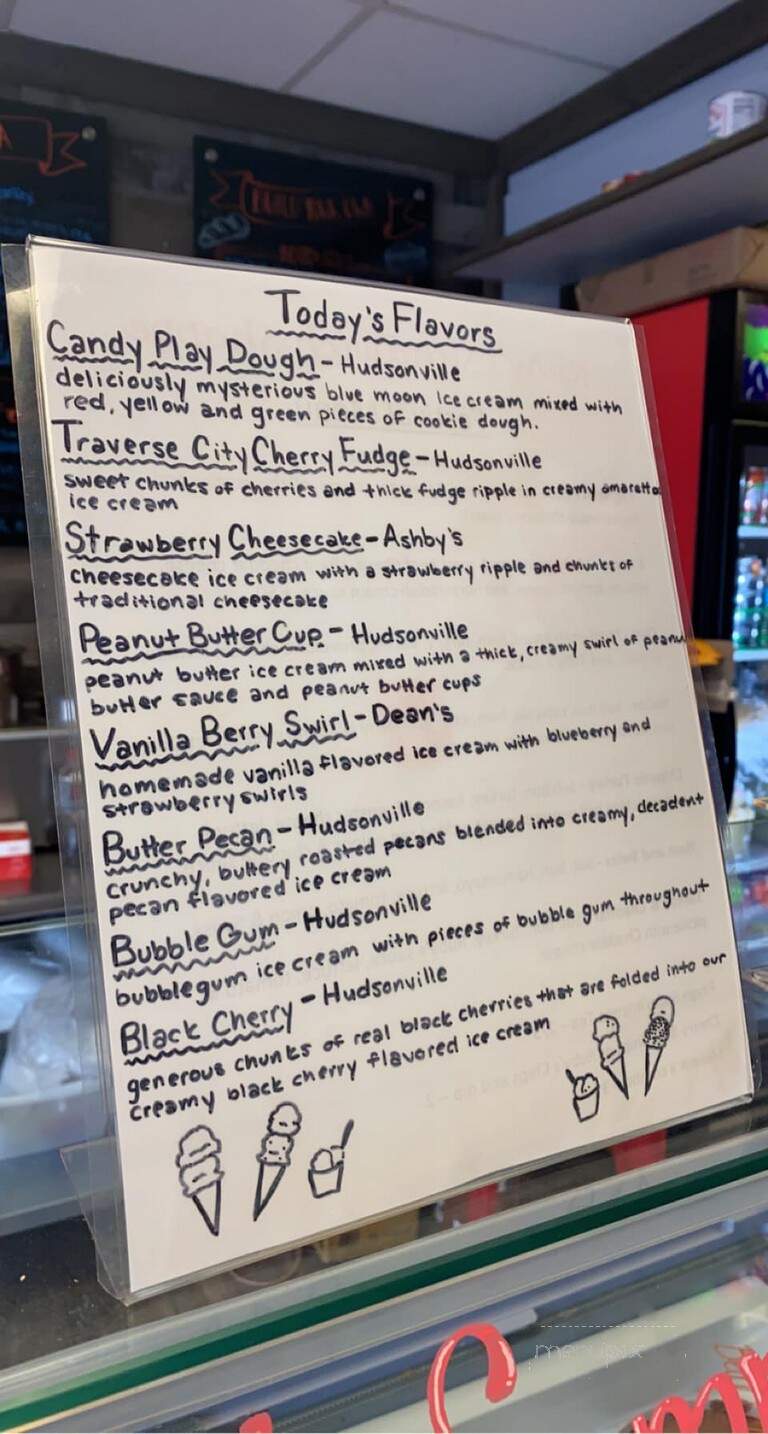 Today's Flavors
Candy Play Dough - Hudsonville
deliciously mysterious blue moon ice cream mixed with
red, yellow and green pieces of cookie dough.
Traverse City Cherry Fudge - Hudsonville
sweet chunks of cherries and thick fudge ripple in creamy amaretto
ice cream
Strawberry Cheesecake - Ashby's
cheesecake ice cream with a strawberry ripple and chunks of
traditional cheesecake
Peanut Butter Cup - Hudsonville
peanut butter ice cream mixed with a thick, creamy swirl of peanu
butter sauce and peanut butter cups
Vanilla Berry Swirl - Dean's
homemade vanilla flavored ice cream with blueberry and
strawberry swirls
Butter Pecan - Hudsonville
crunchy, buttery roasted pecans blended into creamy, decadent
pecan flavored ice cream
Bubble Gum - Hudsonville
bubblegum ice cream with pieces of bubble gum throughout
Black Cherry - Hudsonville
generous chunks of real black cherries that are folded into our
creamy black cherry flavored ice cream
menupix